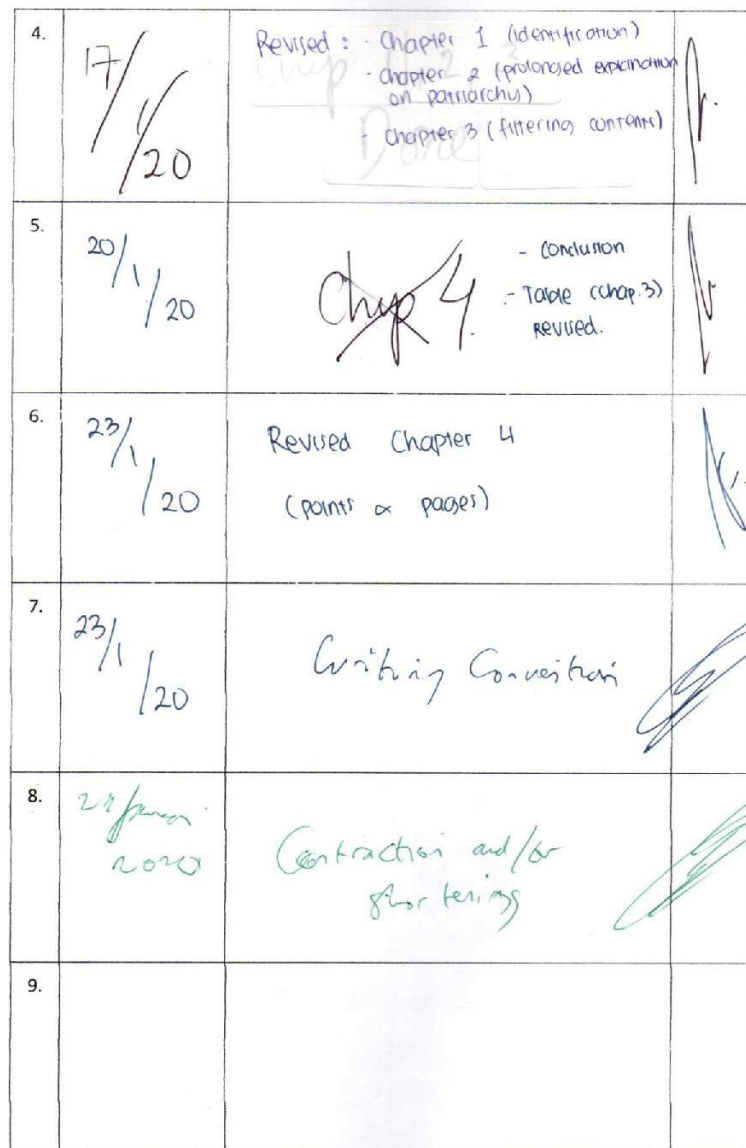 4.
17/1/20
Revised : - Chapter 1 (identification)
- chapter 2 (prolonged explanation
on patriarchy)
- Chapter 3 (filtering contents)
Done
5.
20/1/20
Chap 4
- Conclusion
- Table (chap.3)
revised.
6.
23/1/20
Revised Chapter 4
(points & pages)
7.
23/1/20
Writing Convention
8.
2020
Contraction and/or
shortening
9.